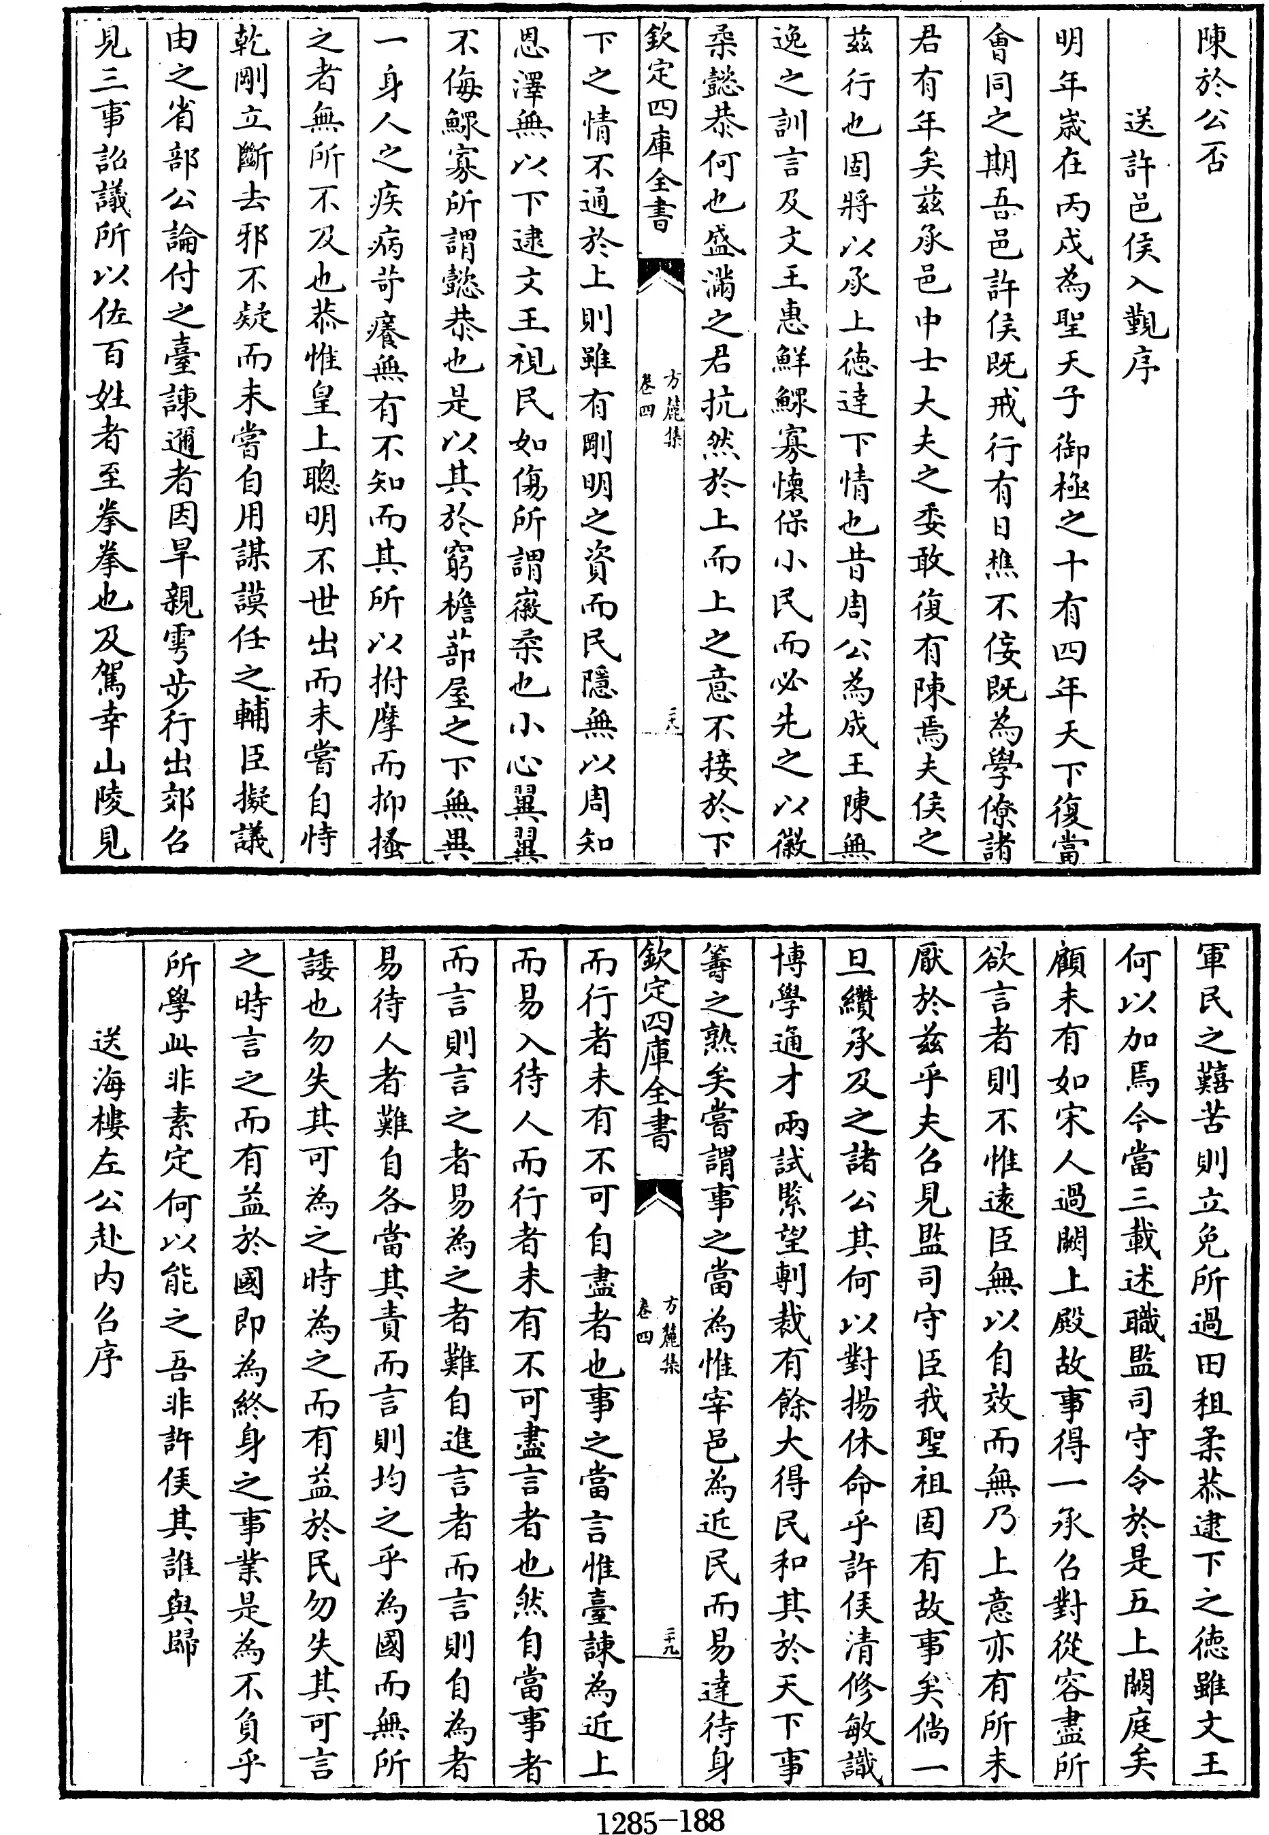 陳於公否
送許邑侯入覲序
明年歳在丙戌為聖天子御極之十有四年天下復當
會同之期吾邑許侯既戒行有日樵不佞既為學僚諸
君有年矣兹承邑中士大夫之委敢復有陳焉夫侯之
兹行也固將以承上徳達下情也昔周公為成王陳無
逸之訓言及文王惠鮮鰥寡懐保小民而必先之以徽
柔懿恭何也盛滿之君抗然於上而上之意不接於下
欽定四庫全書
方麓集
卷四
二十八
下之情不通於上則雖有剛明之資而民隱無以周知
恩澤無以下逮文王視民如傷所謂徽柔也小心翼翼
不侮鰥寡所謂懿恭也是以其於窮檐蔀屋之下無異
一身人之疾病苛癢無有不知而其所以拊摩而抑搔
之者無所不及也恭惟皇上聰明不世出而未嘗自恃
乾剛立斷去邪不疑而未嘗自用謀謨任之輔臣擬議
由之省部公論付之臺諫邇者因旱親雩步行出郊召
見三事諮議所以佐百姓者至拳拳也及駕幸山陵見
軍民之囏苦則立免所過田租柔恭逮下之徳雖文王
何以加焉今當三載述職監司守令於是五上闕庭矣
顧未有如宋人過闕上殿故事得一承召對從容盡所
欲言者則不惟逺臣無以自效而無乃上意亦有所未
厭於兹乎夫召見監司守臣我聖祖固有故事矣倘一
旦纘承及之諸公其何以對揚休命乎許侯清修敏識
博學通才兩試緊望剸裁有餘大得民和其於天下事
籌之熟矣嘗謂事之當為惟宰邑為近民而易達待身
欽定四庫全書
方麓集
卷四
二十九
而行者未有不可自盡者也事之當言惟臺諫為近上
而易入待人而行者未有不可盡言者也然自當事者
而言則言之者易為之者難自進言者而言則自為者
易待人者難自各當其責而言則均之乎為國而無所
諉也勿失其可為之時為之而有益於民勿失其可言
之時言之而有益於國即為終身之事業是為不負乎
所學此非素定何以能之吾非許侯其誰與歸
送海樓左公赴内召序
1285-188